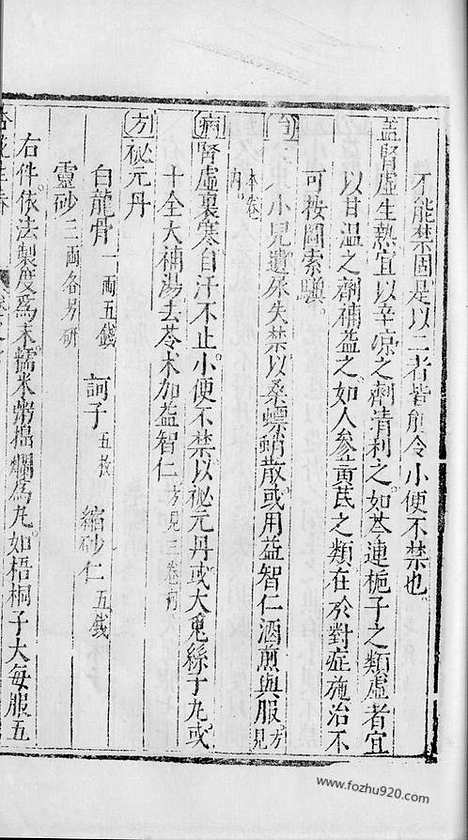 不能禁固是以二者皆能令小便不禁也
蓋腎虛生熱宜以辛凉之劑清利之如芩連梔子之類虛者宜
以甘溫之劑補益之如人參黃芪之類在於對症施治不
可按圖索驥
治 小兒遺尿失禁以桑螵蛸散或用益智仁酒煎與服方見
本卷
内
病 腎虛裏寒自汗不止小便不禁以祕元丹或大兎絲子丸或
十全大補湯去苓朮加益智仁方見三卷
方 祕元丹
白龍骨一両五錢 訶子五枚 縮砂仁五錢
靈砂二両各另研
右件依法製度爲末糯米粥搗爛爲丸如梧桐子大每服五
www.fozhu920.com